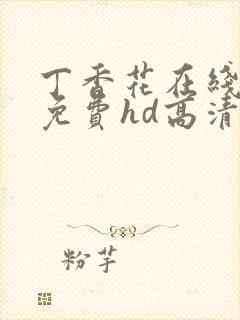 丁香花在綫
免費hd高清
粉芋